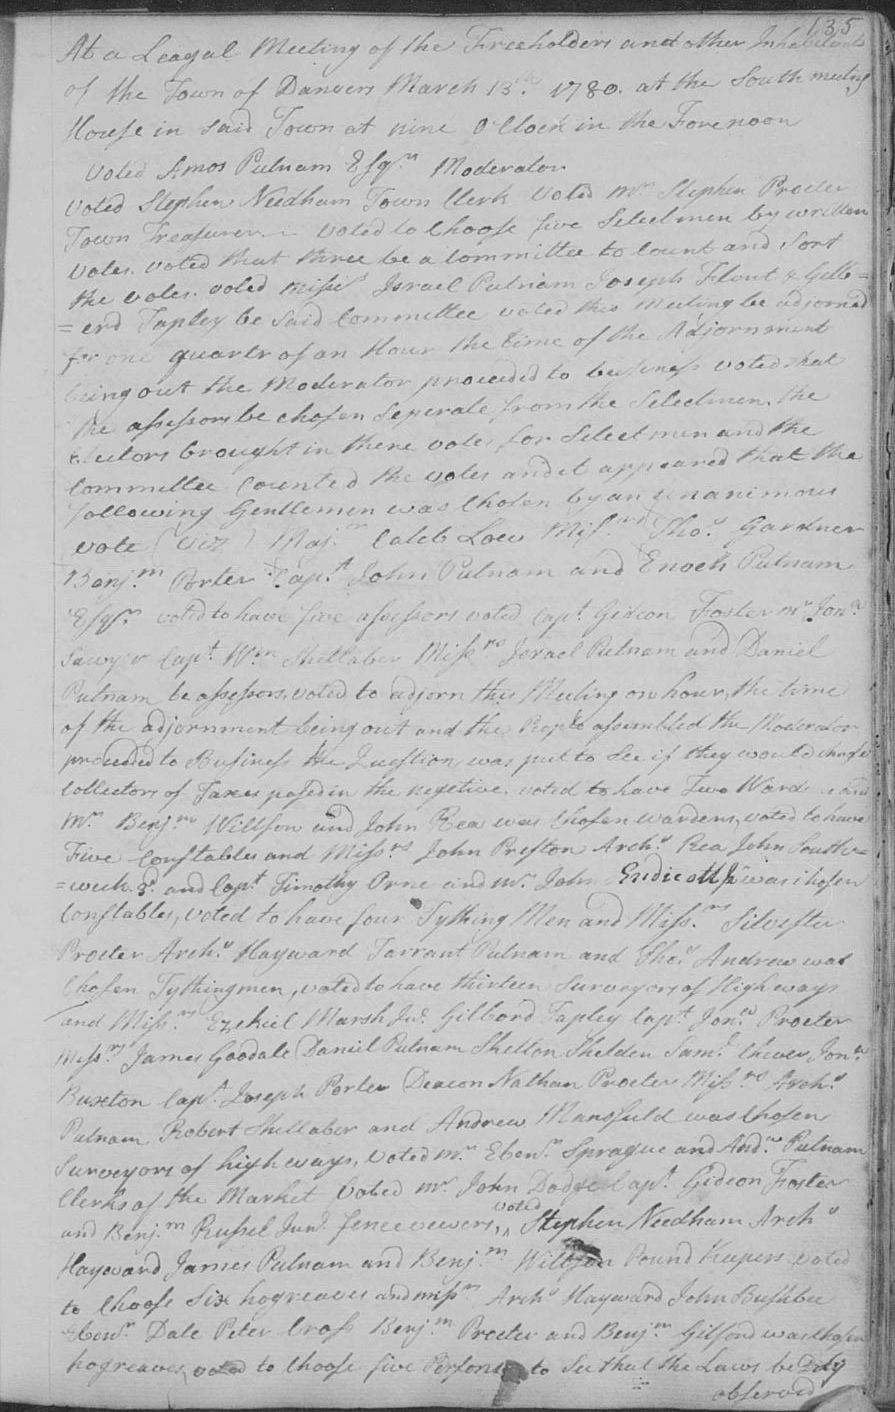 135
At a Leagal Meeting of the Freeholders and other Inhabitants
of the Town of Danvers March 13th 1780. at the South meeting
House in said Town at nine O'Clock in the Forenoon
Voted Amos Putnam Esqr Moderator
voted Stephen Needham Town Clerk Voted mr Stephen Procter
Town Treasurer - voted to Choose five Selectmen by written
votes. voted that three be a Committee to Count and Sort
the votes. voted Missrs Israel Putnam Joseph Flint & Gilb=
=erd Tapley be said Committee voted this Meeting be adjorned
for one quartr of an Hour the time of the Adjornment
being out the Moderator proceeded to business voted that
the assessors be chosen Seperate from the Selectmen. the
Electors brought in there votes for Selectmen and the
Committee Counted the votes and it appeared that the
following Gentlemen was Chosen by an unanimous
vote (Viz) Majr Caleb Low Missrs Thos Gardner
Benjm Porter Capt John Putnam and Enoch Putnam
Esqrs voted to have five assessors voted Capt Gideon Foster mr Jonn
Sawyer Capt Wm Shillaber Missrs Israel Putnam and Daniel
Putnam be assessors, voted to adjorn this Meeting on hour, the time
of the adjornment being out and the People assembled the Moderator
proceeded to Business the Question was put to See if they would chose
Collectors of Taxes pased in the negitive. voted to have Two Wardens and
Mr Benjm Willson and John Rea was Chosen wardens, voted to have
Five Constables and Missrs John Preston Archs Rea John South=
=wick 3d and Capt Timothy Orne and mr John Endicott Jr was chosen
Constables, voted to have four Tything Men and Missrs Silvester
Procter Archs Hayward Tarrant Putnam and Thos Andrew was
Chosen Tythingmen, voted to have thirteen Surveyors of High ways
and Missrs Ezekiel Marsh Jur Gilbord Tapley Capt Jonn Procter
Missrs James Goodale Daniel Putnam Skelton Shelden Saml Chever Jonn
Buxton Capt Joseph Porter Deacon Nathan Procter Missrs Archs
Putnam Robert Shillaber and Andrew Mansfield was Chosen
Surveyors of high ways, Voted mr Ebenr Sprague and Andw Putnam
Clerks of the Market Voted mr John Dodge Capt Gideon Foster
and Benjm Russel Junr fence vewers, voted Stephen Needham Archs
Hayward James Putnam and Benjm Willson Pound Keepers voted
to Choose Six hogreaves and missrs Archs Hayward John Bushbee
Ebenr Dale Peter Cross Benjm Procter and Benjm Gilford was Chosen
hogreaves, voted to Choose five Persons to See that the Laws be Duly
observed